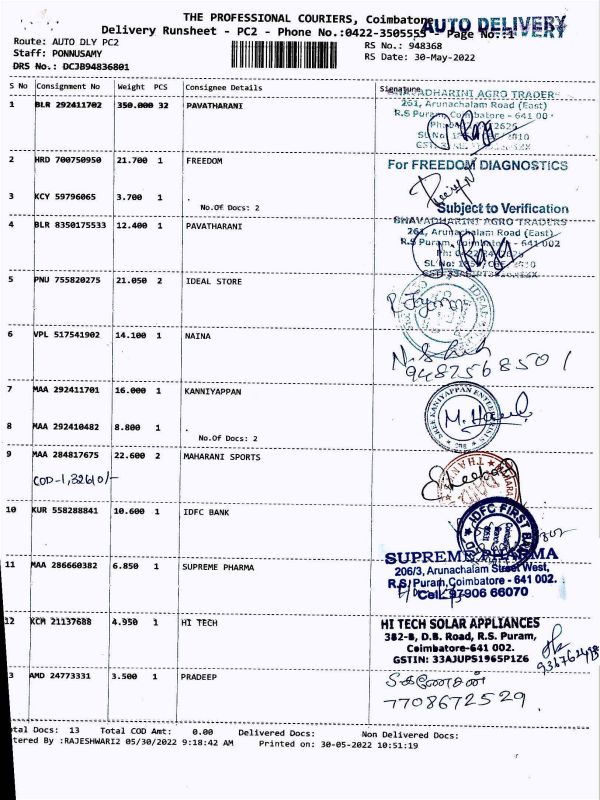 THE PROFESSIONAL COURIERS, Coimbatore
AUTO DELIVERY
Delivery Runsheet - PC2 - Phone No.:0422-3505555 - Page No.:1
Route: AUTO DLY PC2
RS No.: 948368
Staff: PONNUSAMY
RS Date: 30-May-2022
DRS No.: DCJB94836801
S No Consignment No Weight PCS Consignee Details Signature
1 BLR 292411702 350.000 32 PAVATHARANI
BHAVADHARINI AGRO TRADERS
261, Arunachalam Road (East)
R.S Puram, Coimbatore - 641 00
2 HRD 700750950 21.700 1 FREEDOM
For FREEDOM DIAGNOSTICS
3 KCY 59796065 3.700 1 .
No.Of Docs: 2
Subject to Verification
4 BLR 8350175533 12.400 1 PAVATHARANI
BHAVADHARINI AGRO TRADERS
261, Arunachalam Road (East)
R.S Puram, Coimbatore - 641 002
5 PNU 755820275 21.050 2 IDEAL STORE
IDEAL
6 VPL 517541902 14.100 1 NAINA
9487568501
7 MAA 292411701 16.000 1 KANNIYAPPAN
SHREE KANIYAPPAN ENTERPRISES
8 MAA 292410482 8.800 1 .
No.Of Docs: 2
9 MAA 284817675 22.600 2 MAHARANI SPORTS
COD-1,32610/-
10 KUR 558288841 10.600 1 IDFC BANK
IDFC FIRST BANK
11 MAA 286660382 6.850 1 SUPREME PHARMA
SUPREME PHARMA
206/3, Arunachalam Street West,
R.S. Puram, Coimbatore - 641 002.
Cell: 97906 66070
12 KCM 21137688 4.950 1 HI TECH
HI TECH SOLAR APPLIANCES
382-B, D.B. Road, R.S. Puram,
Coimbatore-641 002.
GSTIN: 33AJUPS1965P1Z6
3 AMD 24773331 3.500 1 PRADEEP
7708672529
otal Docs: 13 Total COD Amt: 0.00 Delivered Docs: Non Delivered Docs:
tered By :RAJESHWARI2 05/30/2022 9:18:42 AM Printed on: 30-05-2022 10:51:19